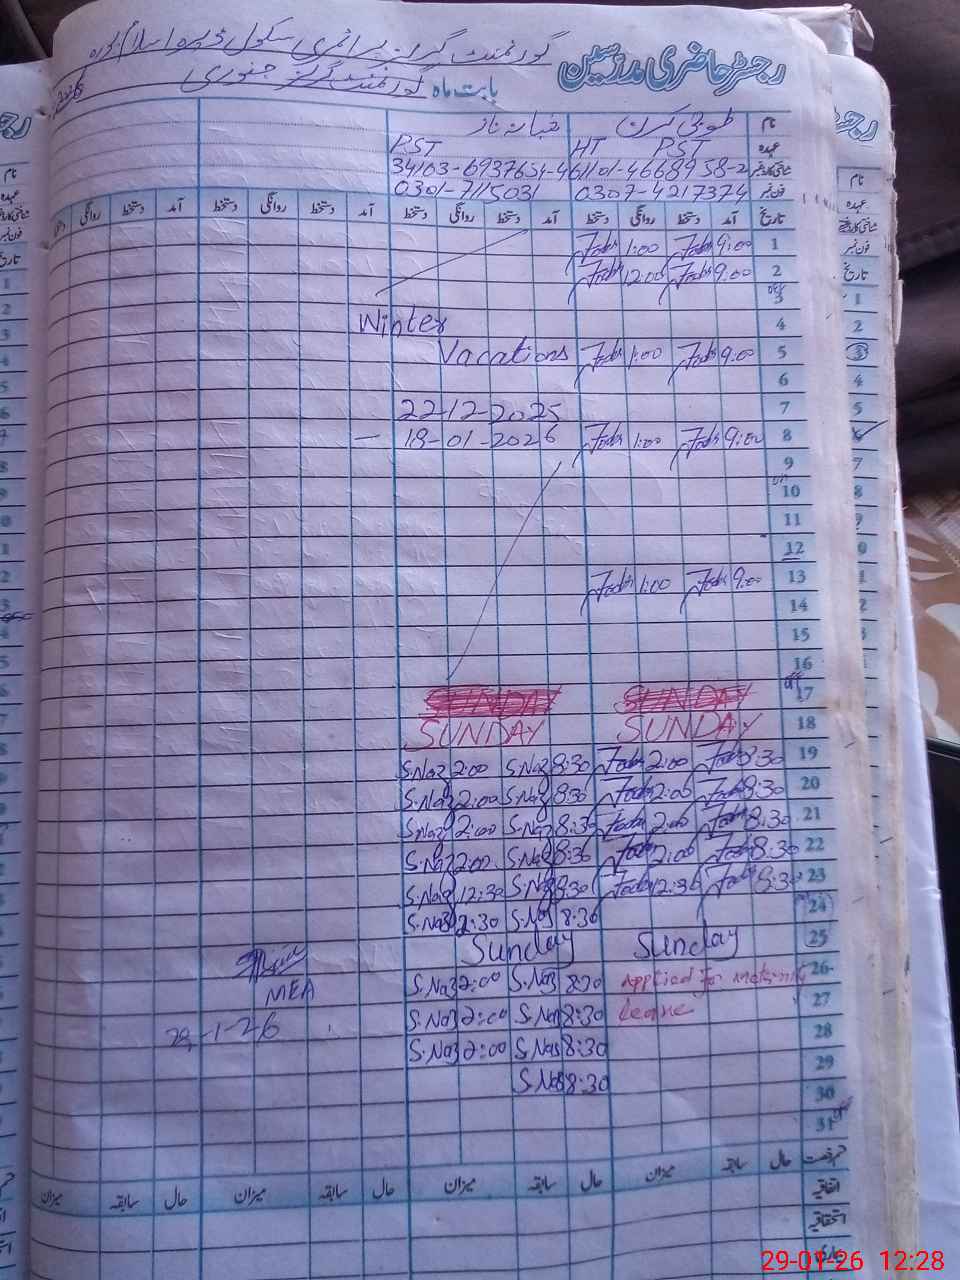 گورنمنٹ گرلز پرائمری سکول ڈیرہ اسلام پورہ
رجسٹر حاضری مدرسین
بابت ماہ گورنمنٹ گرلز جنوری
نام طوبیٰ کرن شبانہ ناز
عہدہ HT PST PST
61101-4668958-2 34103-6937654-4
فون نمبر 0307-4217374 0301-7115031
تاریخ آمد دستخط روانگی دستخط آمد دستخط روانگی دستخط آمد دستخط روانگی دستخط آمد دستخط روانگی
1 9:00 1:00
2 9:00 12:00
3
4 Winter
5 9:00 1:00 Vacations
6
7 22-12-2025
8 9:00 1:00 18-01-2026 —
9
10
11
12
13 9:00 1:00
14
15
16
17 SUNDAY SUNDAY
18 SUNDAY SUNDAY
19 8:30 2:00 S.Naz 8:30 S.Naz 2:00
20 8:30 2:00 S.Naz 8:30 S.Naz 2:00
21 8:30 2:00 S.Naz 8:30 S.Naz 2:00
22 8:30 2:00 S.Naz 8:30 S.Naz 2:00
23 8:30 12:30 S.Naz 8:30 S.Naz 12:30
24 S.Naz 8:30 S.Naz 2:30
25 Sunday Sunday
26 Applied for maternity S.Naz 8:30 S.Naz 2:00
MEA
27 leave S.Naz 8:30 S.Naz 2:00
29-1-26
28 S.Naz 8:30 S.Naz 2:00
29 S.Naz 8:30
30
31
حال سابقہ میزان حال سابقہ میزان حال سابقہ میزان حال سابقہ میزان
اتفاقیہ
استحقاقیہ
بیماری
29-01-26 12:28